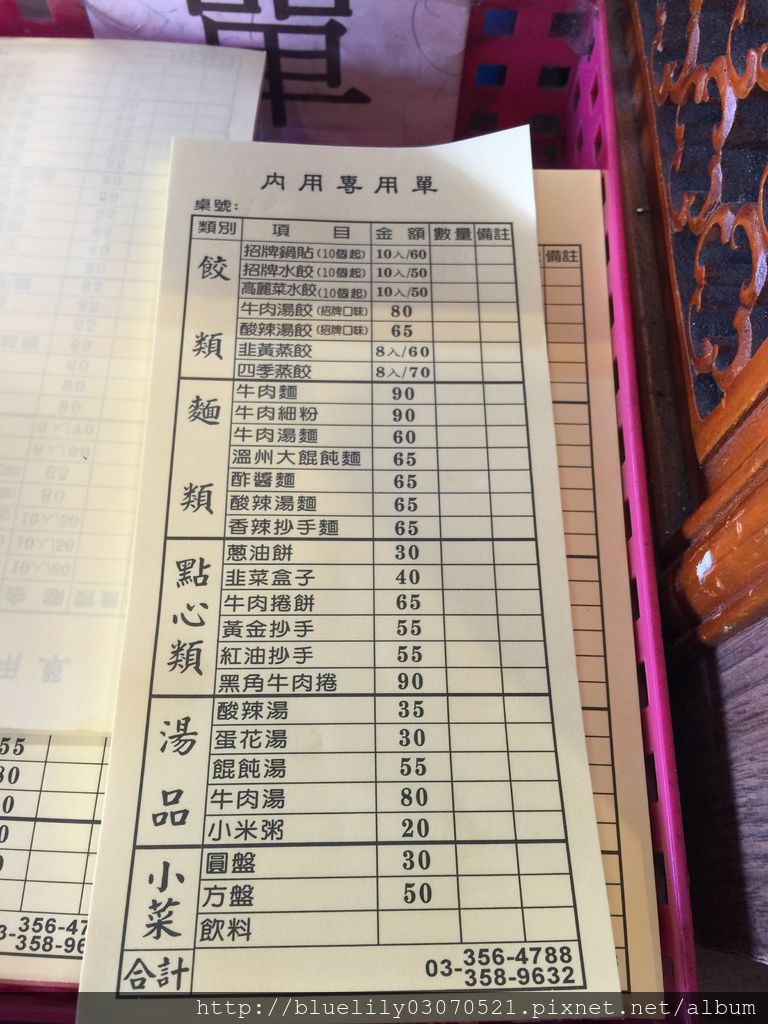 單
內用專用單
桌號:
類別 項目 金額 數量 備註
餃類
招牌鍋貼(10個起) 10入/60
招牌水餃(10個起) 10入/50
高麗菜水餃(10個起) 10入/50
牛肉湯餃(招牌口味) 80
酸辣湯餃(招牌口味) 65
韭黃蒸餃 8入/60
四季蒸餃 8入/70
麵類
牛肉麵 90
牛肉細粉 90
牛肉湯麵 60
溫州大餛飩麵 65
酢醬麵 65
酸辣湯麵 65
香辣抄手麵 65
點心類
蔥油餅 30
韭菜盒子 40
牛肉捲餅 65
黃金抄手 55
紅油抄手 55
黑角牛肉捲 90
湯品
酸辣湯 35
蛋花湯 30
餛飩湯 55
牛肉湯 80
小米粥 20
小菜
圓盤 30
方盤 50
飲料
合計
03-356-4788
358-9632
備註
55
356-47
358-96
http://bluelily03070521.pixnet.net/album